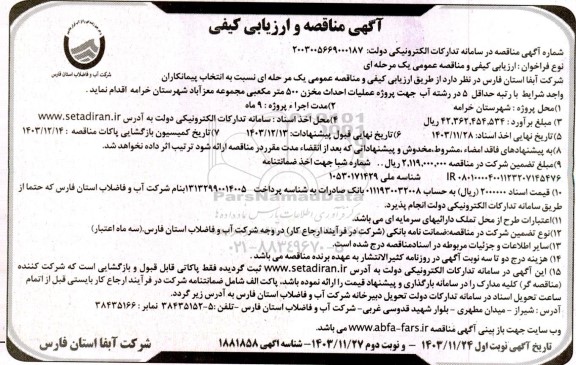 آگهی مناقصه و ارزیابی کیفی
شماره آگهی مناقصه در سامانه تدارکات الکترونیکی دولت: ۲۰۰۳۰۰۵۶۶۹۰۰۰۱۸۷
نوع فراخوان : ارزیابی کیفی و مناقصه عمومی یک مرحله ای
شرکت آبفا استان فارس در نظر دارد از طریق ارزیابی کیفی و مناقصه عمومی یک مرحله ای نسبت به انتخاب پیمانکاران
واجد شرایط با رتبه حداقل ۵ در رشته آب جهت پروژه عملیات احداث مخزن ۵۰۰ متر مکعبی مجموعه معزآباد شهرستان خرامه اقدام نماید .
۱)محل پروژه : شهرستان خرامه ۲)مدت اجراء پروژه : ۹ ماه
۳) مبلغ برآورد : ۴۲,۳۶۲,۴۵۴,۵۳۴ ریال ۴)محل اخذ اسناد : سامانه تدارکات الکترونیکی دولت به آدرس www.setadiran.ir
۵)تاریخ نهایی اخذ اسناد: ۱۴۰۳/۱۱/۲۸ ۶)تاریخ نهایی قبول پیشنهادات: ۱۴۰۳/۱۲/۱۳ ۷)تاریخ کمیسیون بازگشایی پاکات مناقصه : ۱۴۰۳/۱۲/۱۴
۸)به پیشنهادهای فاقد امضاء ،مشروط،مخدوش و پیشنهاداتی که بعد از انقضاء مدت مقرر در مناقصه ارائه شود ترتیب اثر داده نخواهد شد.
۹)مبلغ تضمین شرکت در مناقصه ۲,۱۱۹,۰۰۰,۰۰۰ ریال . شماره شبا جهت اخذ ضمانتنامه
IR شناسه ملی ۱۰۵۳۰۱۷۱۴۲۹
۱۰) قیمت اسناد ۲۰۰۰۰۰۰ (ریال) به حساب ۰۱۱۱۹۳۰۰۳۲۰۰۸ بانک صادرات به شناسه پرداخت بنام شرکت آب و فاضلاب استان فارس که حتما از
طریق سامانه تدارکات الکترونیکی دولت انجام پذیرد.
۱۱)اعتبارات طرح از محل تملک دارائیهای سرمایه ای می باشد.
۱۲)نوع تضمین شرکت در مناقصه:ضمانت نامه بانکی (شرکت در فرآیند ارجاع کار) در وجه شرکت آب و فاضلاب استان فارس.(سه ماه اعتبار)
۱۳)سایر اطلاعات و جزئیات مربوطه در اسنادمناقصه درج شده است .
۱۴) هزینه درج دو تا سه نوبت آگهی در روزنامه کثیرالانتشار به عهده برنده مناقصه می باشد .
۱۵) این آگهی در سامانه تدارکات الکترونیکی دولت به آدرس www.setadiran.ir ثبت گردیده فقط پاکاتی قابل قبول و بازگشایی است که شرکت کننده
(مناقصه گر) کلیه مدارک را در سامانه بارگذاری و پیشنهاد قیمت را ارائه نموده باشد، پاکت الف شامل ضمانتنامه شرکت در فرآیند ارجاع کار بایستی قبل از اتمام
ساعت تحویل اسناد در سامانه تدارکات دولت تحویل دبیرخانه شرکت آب و فاضلاب استان فارس به آدرس زیر گردد.
آدرس : شیراز - میدان مطهری - بلوار شهید قدوسی غربی- شرکت آب و فاضلاب استان فارس -تلفن: ۵-۳۸۴۳۵۱۵۲ نمابر : ۳۸۴۳۵۱۶۶
وب سایت جهت باز بینی آگهی مناقصه www.abfa-fars.ir می باشد.
تاریخ آگهی نوبت اول ۱۴۰۳/۱۱/۲۴ - و نوبت دوم ۱۴۰۳/۱۱/۲۷- شناسه آگهی ۱۸۸۱۸۵۸ شرکت آبفا استان فارس
شرکت آب و فاضلاب استان فارس
ParsNamadData
۰۲۱-۸۸۳۴۹۶۷۰